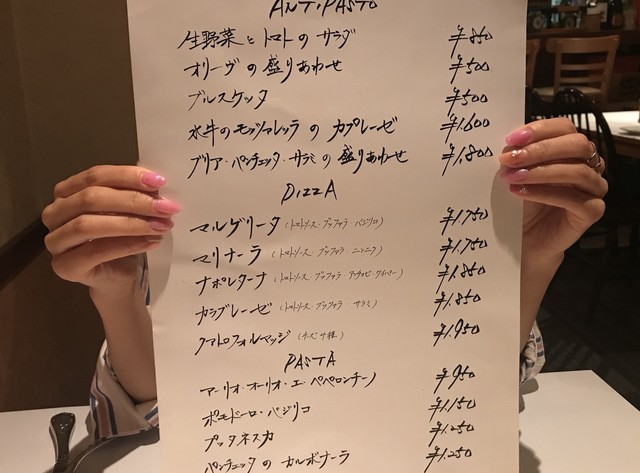 ANTIPASTO
生野菜とトマトのサラダ ¥850
オリーヴの盛りあわせ ¥500
ブルスケッタ ¥500
水牛のモッツァレッラのカプレーゼ ¥1.600
ブリア・パンチェッタ・サラミの盛りあわせ ¥1,800
PIZZA
マルゲリータ（トマトソース・ブッファラ・バジリコ） ¥1.750
マリナーラ（トマトソース・ブッファラ ニンニク） ¥1.750
ナポレターナ（トマトソース・ブッファラ・アンチョビ・ケイパー） ¥1.850
カラブレーゼ（トマトソース・ブッファラ サラミ） ¥1.850
クアトロフォルマッジ（チーズ4種） ¥1,950
PASTA
アーリオ・オーリオ・エ・ペペロンチーノ ¥950
ポモドーロ・バジリコ ¥1.150
プッタネスカ ¥1.250
パンチェッタのカルボナーラ ¥1.250